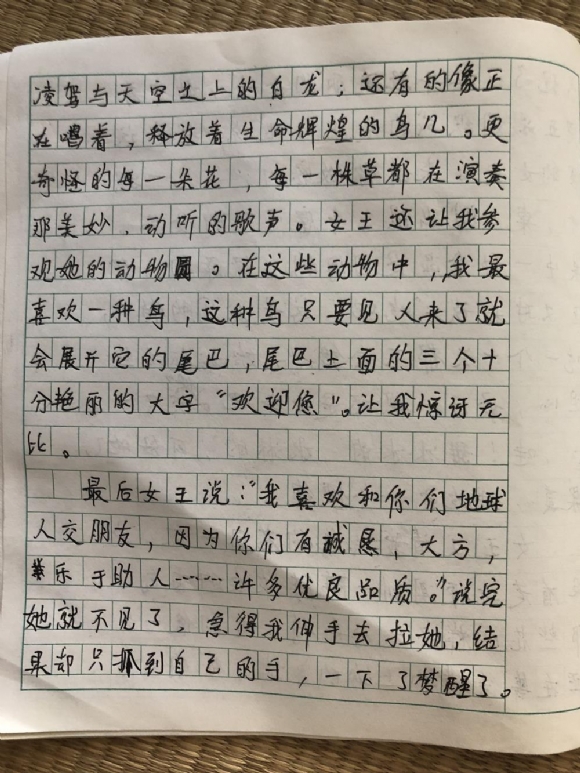 凌驾与天空之上的白龙；还有的像正
在唱着，释放着生命辉煌的鸟儿。更
奇怪的每一朵花，每一株草都在演奏
那美妙、动听的歌声。女王还让我参
观她的动物园。在这些动物中，我最
喜欢一种鸟，这种鸟只要见人来了就
会展开它的尾巴，尾巴上面的三个十
分艳丽的大字“欢迎您”。让我惊讶无
比。
最后女王说：“我喜欢和你们地球
人交朋友，因为你们有诚恳，大方，
乐于助人……许多优良品质。”说完
她就不见了，急得我伸手去拉她，结
果却只抓到自己的手，一下了梦醒了。